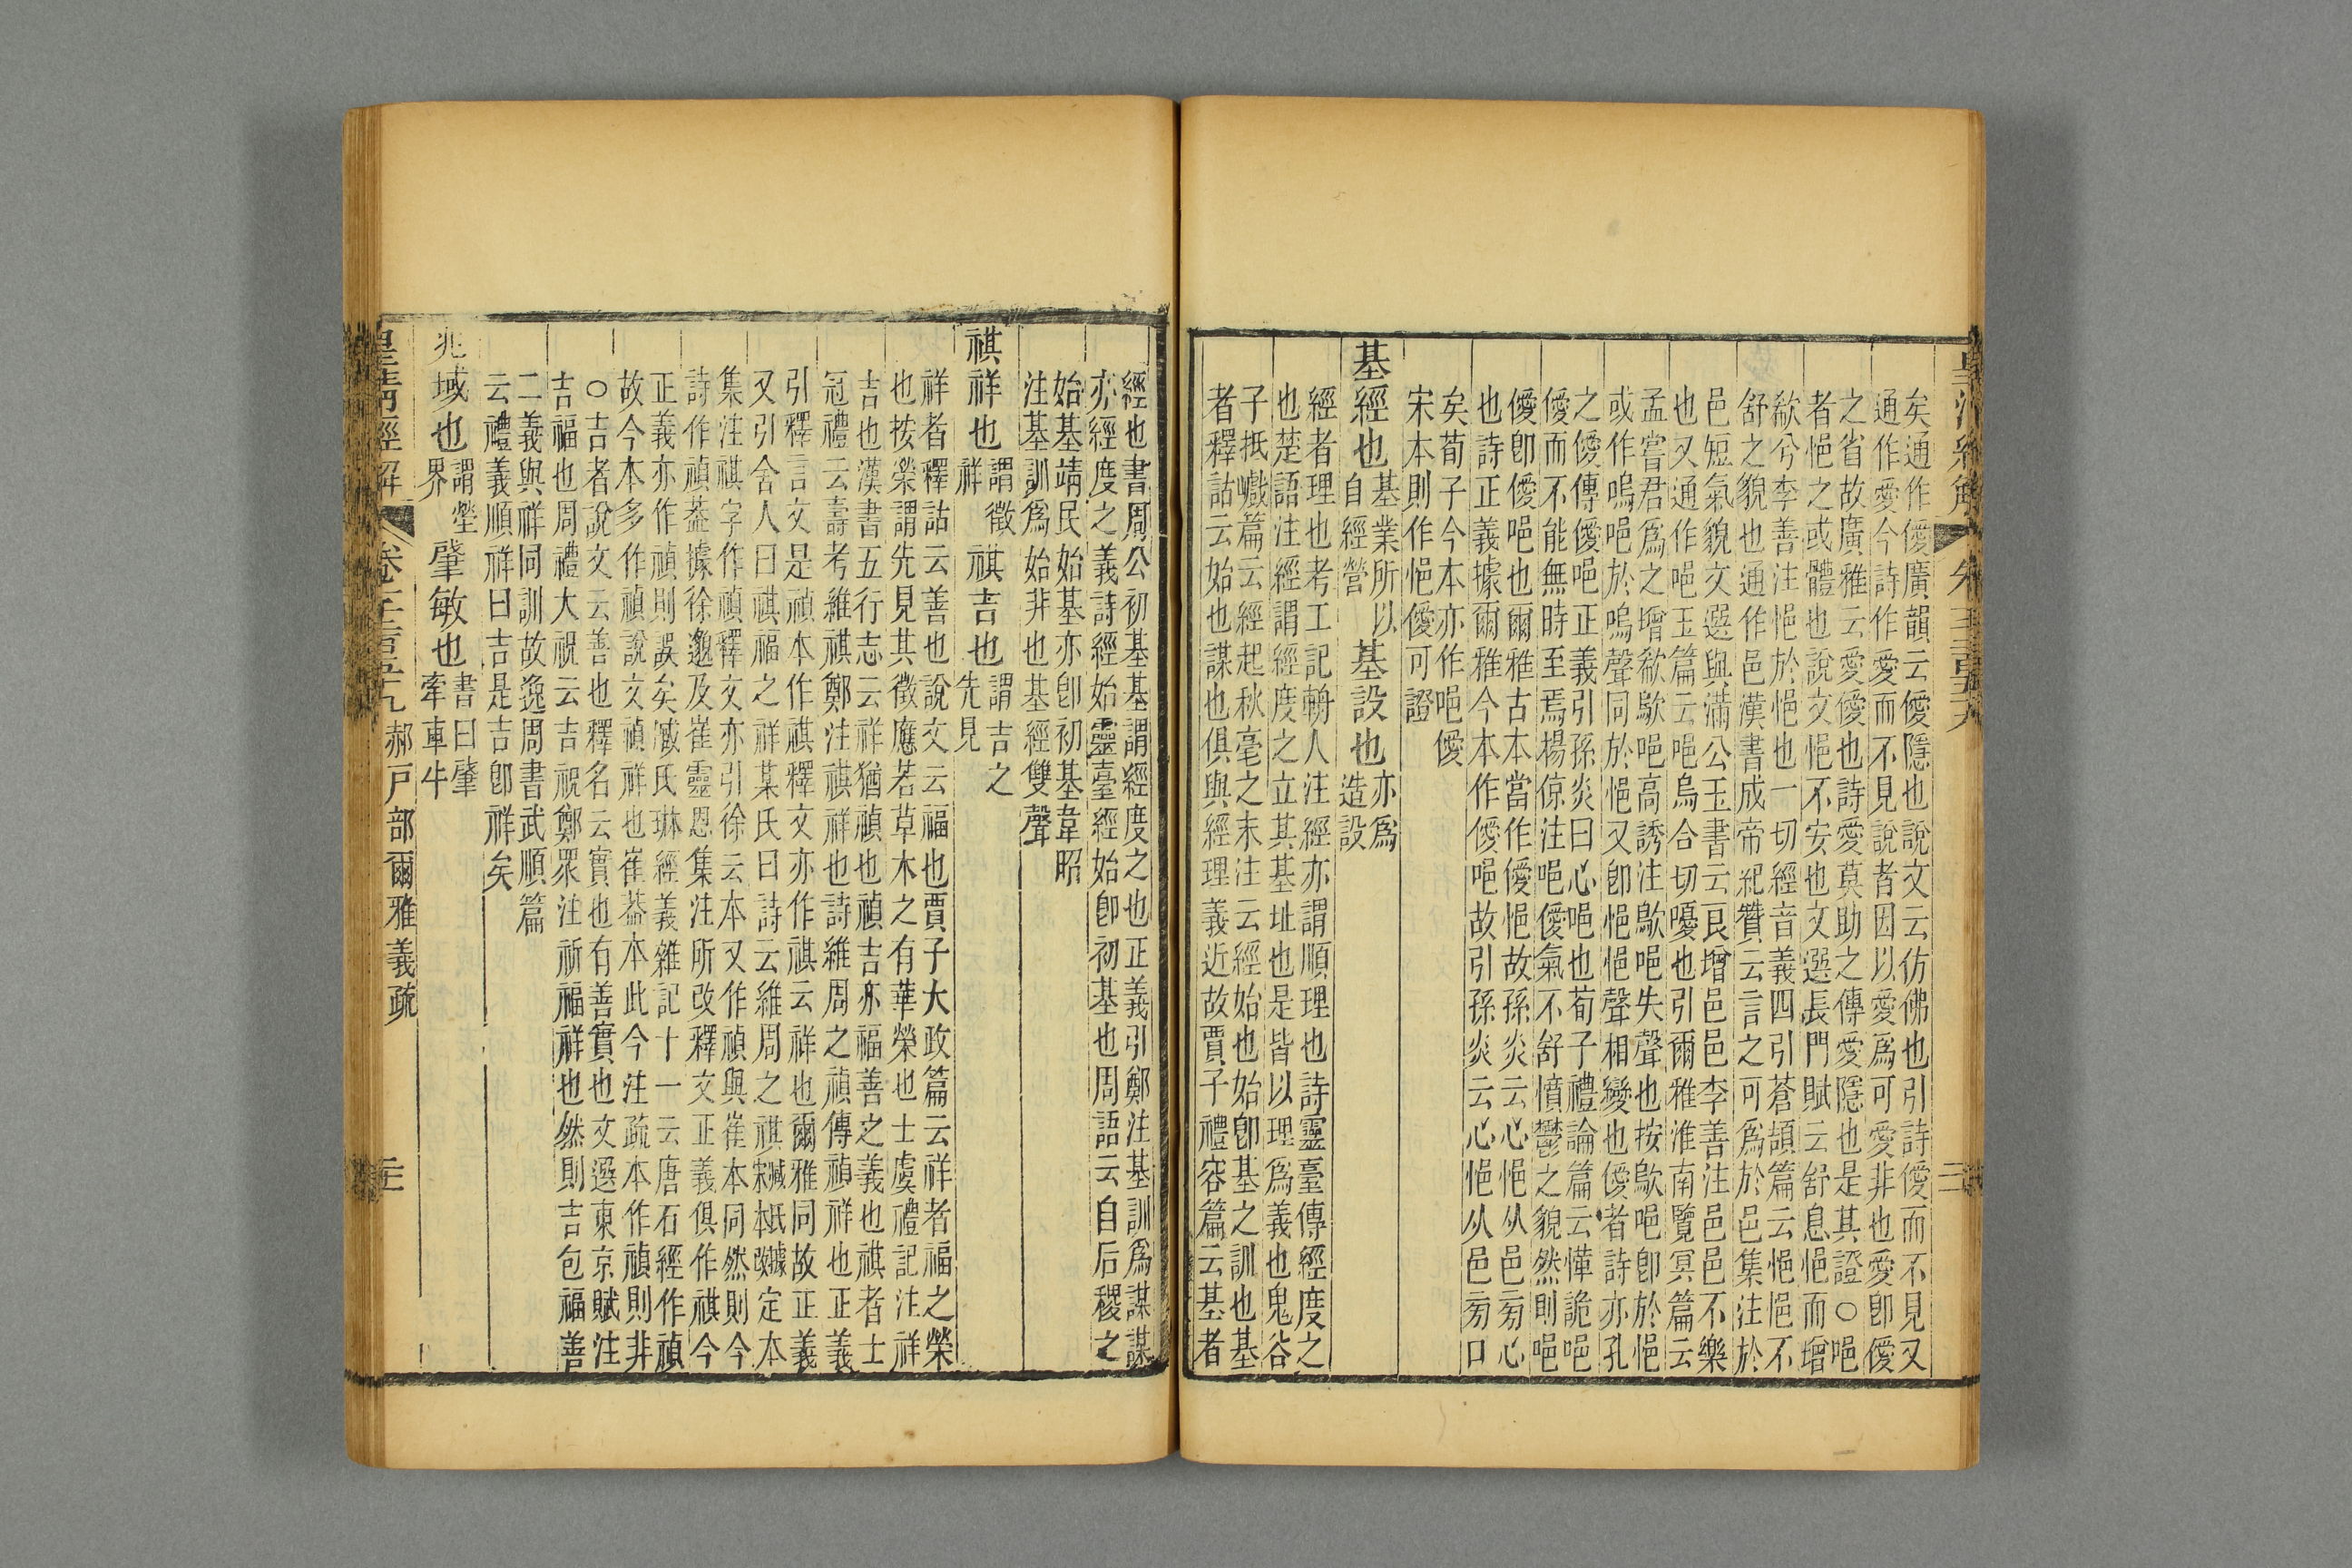 矣通作僾廣韻云僾隱也說文云仿佛也引詩僾而不見又
通作愛今詩作愛而不見說者因以愛爲可愛非也愛卽僾
之省故廣雅云愛僾也詩愛莫助之傳愛隱也是其證○唈
者悒之或體也說文悒不安也文選長門賦云舒息悒而增
欷兮李善注悒於悒也一切經音義四引蒼頡篇云悒悒不
舒之貌也通作邑漢書成帝紀贊云言之可爲於邑集注於
邑短氣貌文選與滿公玉書云良增邑邑李善注邑邑不樂
也又通作唈玉篇云唈烏合切嗳也引爾雅淮南覽冥篇云
孟嘗君爲之增欷歍唈高誘注歍唈失聲也按歍唈卽於悒
或作嗚唈於嗚聲同於悒又卽悒悒聲相變也僾者詩亦孔
之僾傳僾唈正義引孫炎曰心唈也荀子禮論篇云愅詭唈
僾而不能無時至焉楊倞注唈僾氣不舒憤鬱之貌然則唈
僾卽僾唈也爾雅古本當作僾悒故孫炎云心悒从邑㫄心
也詩正義據爾雅今本作僾唈故引孫炎云心悒从邑㫄口
矣荀子今本亦作唈僾
宋本則作悒僾可證
基經也基業所以自經營基設也亦爲造設
經者理也考工記輈人注經亦謂順理也詩靈臺傳經度之
也楚語注經謂經度之立其基址也是皆以理爲義也鬼谷
子抵巇篇云經起秋毫之末注云經始也始卽基之訓也基
者釋詁云始也謀也俱與經理義近故賈子禮容篇云基者
經也書周公初基基謂經度之也正義引鄭注基訓爲謀謀
亦經度之義詩經始靈臺經始卽初基也周語云自后稷之
始基靖民始基亦卽初基韋昭
注基訓爲始非也基經雙聲
祺祥也謂徵祥祺吉也謂吉之先見
祥者釋詁云善也說文云福也賈子大政篇云祥者福之榮
也按榮謂先見其徵應若草木之有華榮也士虞禮記注祥
吉也漢書五行志云祥猶禎也禎吉亦福善之義也祺者士
冠禮云壽考維祺鄭注祺祥也詩維周之禎傳禎祥也正義
引釋言文是禎本作祺釋文亦作祺云祥也爾雅同故正義
又引舍人曰祺福之祥某氏曰詩云維周之祺定本
集注祺字作禎釋文亦引徐云本又作禎與崔本同然則今
詩作禎葢據徐邈及崔靈恩集注所改釋文正義俱作祺今
正義亦作禎則誤矣臧氏琳經義雜記十一云唐石經作禎
故今本多作禎說文禎祥也崔葢本此今注疏本作禎則非
○吉者說文云善也釋名云實也有善實也文選東京賦注
吉福也周禮大祝云吉祝鄭眾注祈福祥也然則吉包福善
二義與祥同訓故逸周書武順篇
云禮義順祥曰吉是吉卽祥矣
兆域也謂塋界肇敏也書曰肇牽車牛
皇清經解 卷一千二百五十九 郝戶部爾雅義疏